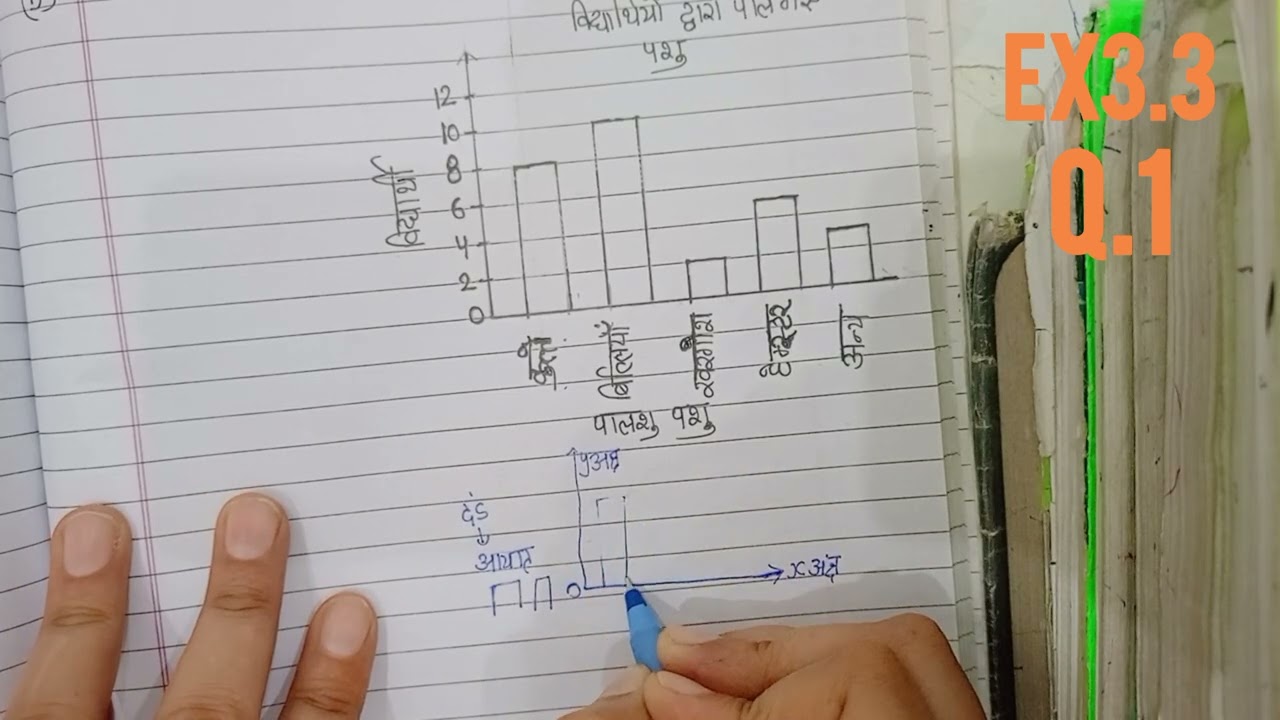 विद्यार्थियों द्वारा
पशु
EX3.3
Q.1
12
10
8
6
4
2
0
विद्यार्थी
कुत्ते
बिल्लियाँ
खरगोश
हैम्स्टर
अन्य
पालशु पशु
y अक्ष
दंड
आयत
0
x अक्ष